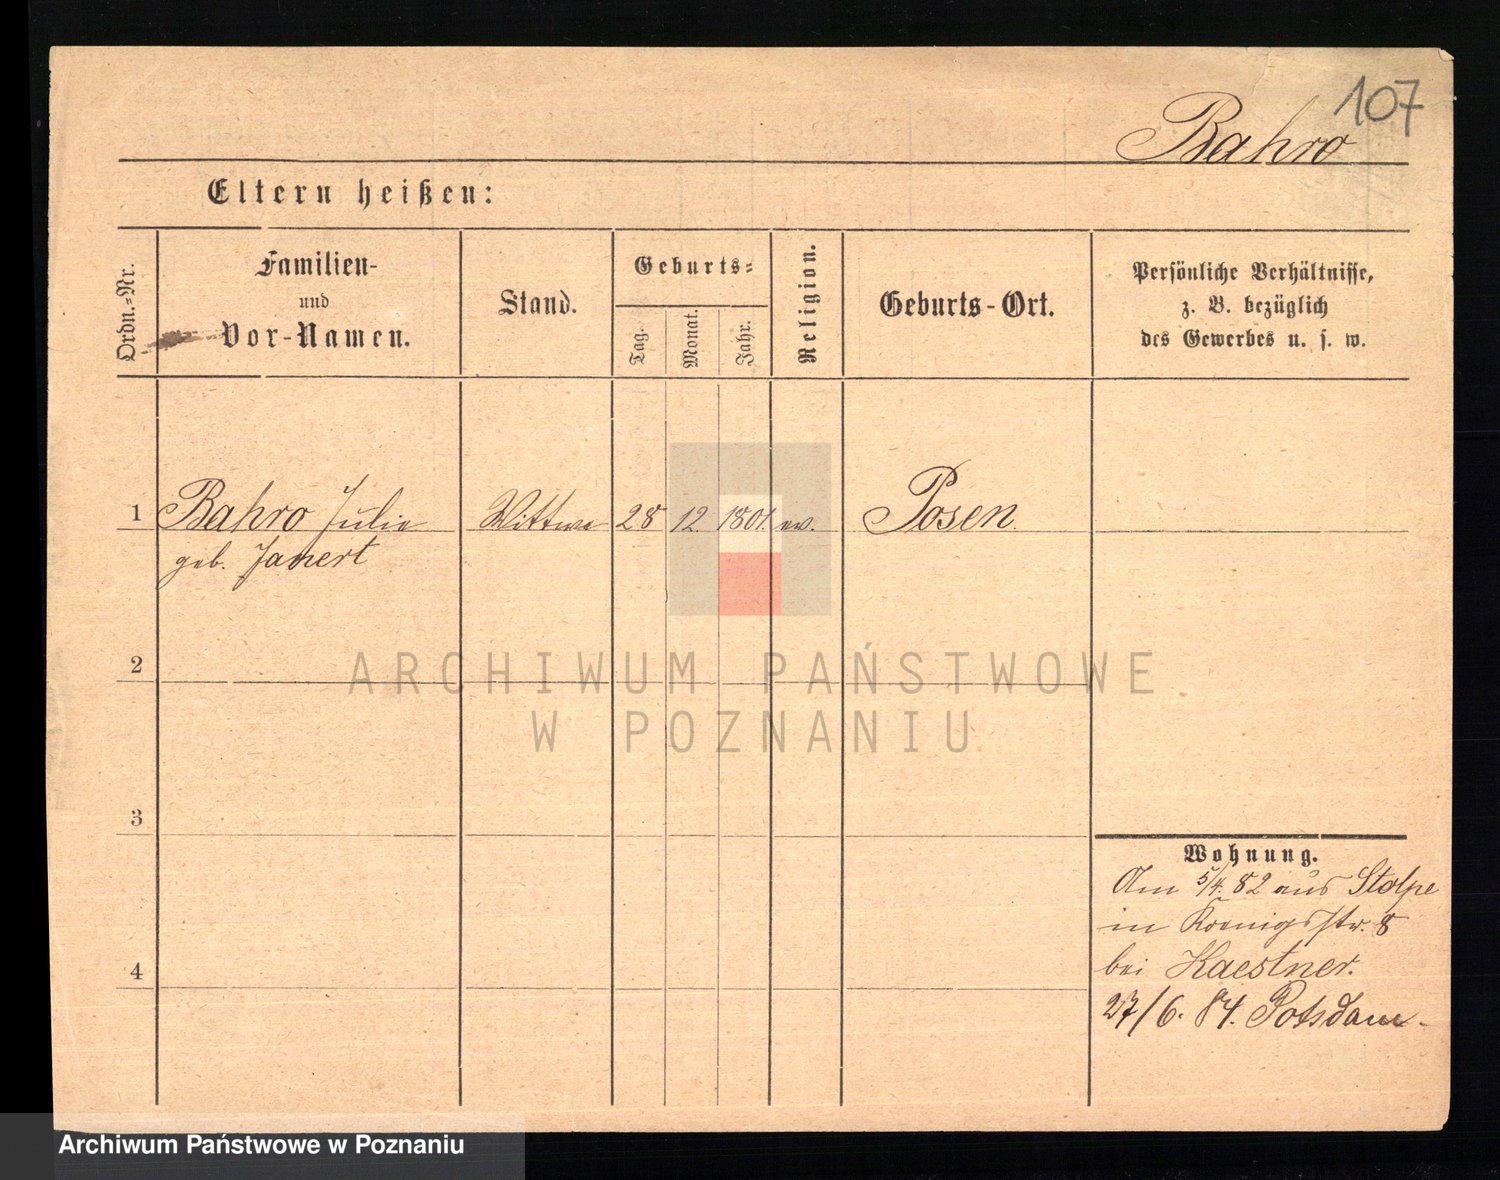 107
Bahro
Eltern heißen:
Ordn.-Nr.
Familien-
und
Vor-Namen.
Stand.
Geburts-
Tag.
Monat.
Jahr.
Religion.
Geburts-Ort.
Persönliche Verhältnisse,
z. B. bezüglich
des Gewerbes u. s. w.
1 Bahro Julie Wittwe 28 12. 1801. ev. Posen
geb. Janert
2
3
4
Wohnung.
Am 5/4. 82 aus Stolpe
in Koenigsstr. 8
bei Kaestner.
27/6. 84. Potsdam-
ARCHIWUM PAŃSTWOWE
W POZNANIU
Archiwum Państwowe w Poznaniu